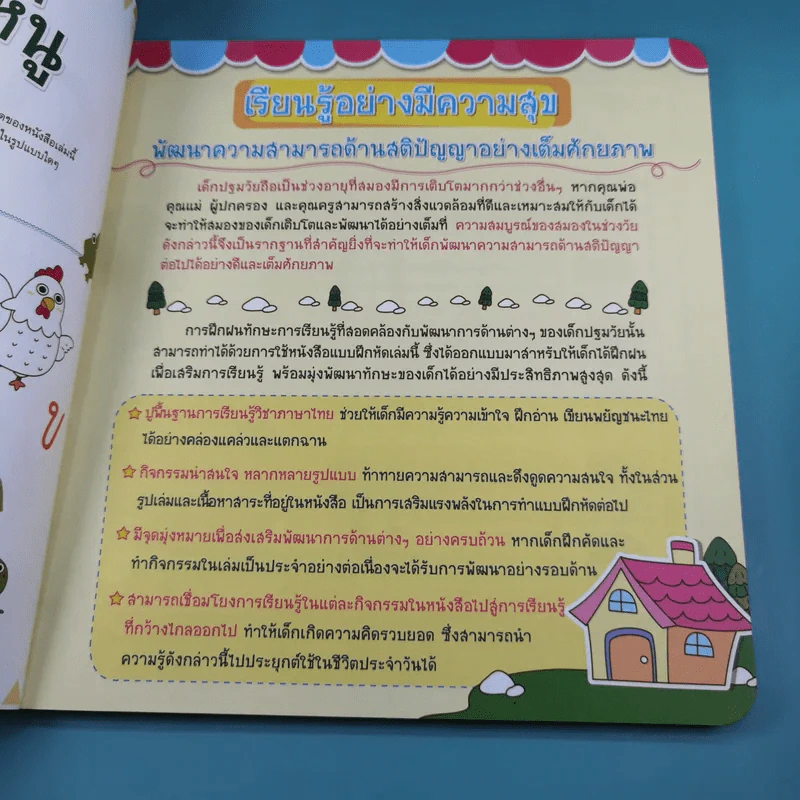 หนู
ของหนังสือเล่มนี้
ในรูปแบบใดๆ
เรียนรู้อย่างมีความสุข
พัฒนาความสามารถด้านสติปัญญาอย่างเต็มศักยภาพ
เด็กปฐมวัยถือเป็นช่วงอายุที่สมองมีการเติบโตมากกว่าช่วงอื่นๆ หากคุณพ่อ
คุณแม่ ผู้ปกครอง และคุณครูสามารถสร้างสิ่งแวดล้อมที่ดีและเหมาะสมให้กับเด็กได้
จะทำให้สมองของเด็กเติบโตและพัฒนาได้อย่างเต็มที่ ความสมบูรณ์ของสมองในช่วงวัย
ดังกล่าวนี้จึงเป็นรากฐานที่สำคัญยิ่งที่จะทำให้เด็กพัฒนาความสามารถด้านสติปัญญา
ต่อไปได้อย่างดีและเต็มศักยภาพ
การฝึกฝนทักษะการเรียนรู้ที่สอดคล้องกับพัฒนาการด้านต่างๆ ของเด็กปฐมวัยนั้น
สามารถทำได้ด้วยการใช้หนังสือแบบฝึกหัดเล่มนี้ ซึ่งได้ออกแบบมาสำหรับให้เด็กได้ฝึกฝน
เพื่อเสริมการเรียนรู้ พร้อมมุ่งพัฒนาทักษะของเด็กได้อย่างมีประสิทธิภาพสูงสุด ดังนี้
ปูพื้นฐานการเรียนรู้วิชาภาษาไทย ช่วยให้เด็กมีความรู้ความเข้าใจ ฝึกอ่าน เขียนพยัญชนะไทย
ได้อย่างคล่องแคล่วและแตกฉาน
กิจกรรมน่าสนใจ หลากหลายรูปแบบ ท้าทายความสามารถและดึงดูดความสนใจ ทั้งในส่วน
รูปเล่มและเนื้อหาสาระที่อยู่ในหนังสือ เป็นการเสริมแรงพลังในการทำแบบฝึกหัดต่อไป
มีจุดมุ่งหมายเพื่อส่งเสริมพัฒนาการด้านต่างๆ อย่างครบถ้วน หากเด็กฝึกคัดและ
ทำกิจกรรมในเล่มเป็นประจำอย่างต่อเนื่องจะได้รับการพัฒนาอย่างรอบด้าน
สามารถเชื่อมโยงการเรียนรู้ในแต่ละกิจกรรมในหนังสือไปสู่การเรียนรู้
ที่กว้างไกลออกไป ทำให้เด็กเกิดความคิดรวบยอด ซึ่งสามารถนำ
ความรู้ดังกล่าวนี้ไปประยุกต์ใช้ในชีวิตประจำวันได้